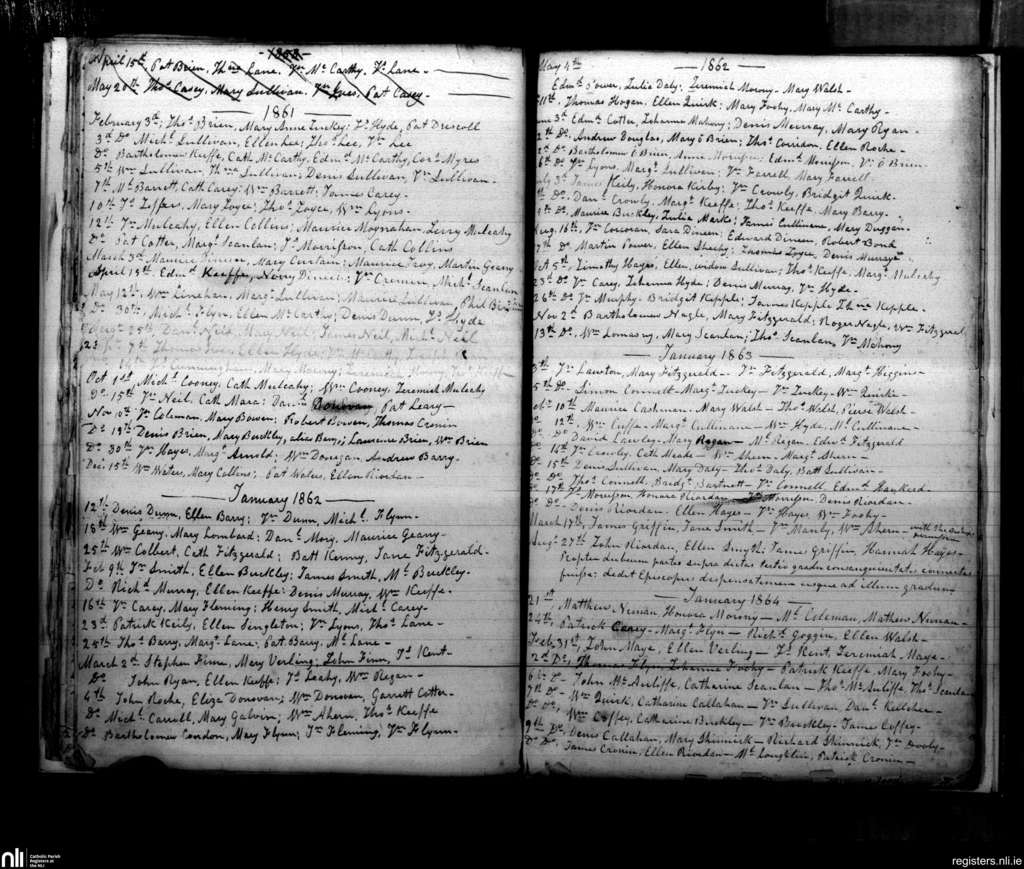 April 15th, Pat Brien, Thos Lane, Jno McCarthy, Jno Lane -
May 20th Thos Casey, Mary Sullivan, Jno Ives, Pat Casey -
- 1861 -
February 3d; Thos Brien, Mary Anne Tuckey; Jno Hyde, Pat Driscoll
3d Do Michl Sullivan, Ellen Lee; Thos Lee, Jno Lee
Do Bartholomew Keeffe, Cath McCarthy, Edmd McCarthy, Cors Myres
5th Wm Sullivan, Sullivan; Denis Sullivan, Jno Sullivan -
7th Ml Barrett, Cath Carey; Wm Barrett; James Carey -
10th Mary Joyce; Thos Joyce, Wm Lyons -
12th Jno Mulcahy, Ellen Collins; Maurice Moynahan, Jerry Mulcahy
Do Pat Cotter, Margt Scanlan; Js Morrisson, Cath Collins
March 3d Maurice Mary Curtain; Maurice Troy, Martin Geany -
April 15th, Edmd Keeffe, Nory Dineen; Jno Cronin, Michl Scanlan
May 12th, Wm Linehan, Margt Sullivan; Maurice Sullivan, Phil
Do 30th, Michl Flyn, Ellen McCarthy; Denis Dunn, Jno Hyde
25th, Danl Neil, Mary Neil; James Neil, Michl Neil
7th Thomas Ellen Hyde; McCarthy,
Cunningham, Mary
Oct 1st, Michl Cooney, Cath Mulcahy; Wm Cooney, Jeremiah Mulcahy
Do 15th Jno Neil, Cath Mara; Danl Donovan, Pat Leary -
Nov 10th Jno Coleman, Mary Bowen; Robert Bowen, Thomas Cronin
Do 19th Denis Brien, Mary Buckley, alias Barry; Laurence Brien, Wm Brien
Do 30th Jno Hayes, Margt Arnold; Wm Donegan, Andrew Barry -
Dec 15th Wm Water, Mary Collins; Pat Water, Ellen Riordan -
- January 1862 -
12th Denis Dunn, Ellen Barry; Jno Dunn, Michl Flynn -
18th Wm Geany, Mary Lombard; Danl Mory, Maurice Geany -
25th Wm Colbert, Cath Fitzgerald; Batt Kenny, Jane Fitzgerald -
Feb 9th Jno Smith, Ellen Buckley; James Smith, Ml Buckley -
Do Richd Murray, Ellen Keeffe; Denis Murray, Wm Keeffe -
16th Jno Carey, Mary Fleming; Henry Smith, Michl Carey -
23d Patrick Keily, Ellen Singleton; Jno Lyons, Thos Lane -
25th Thos Barry, Margt Lane; Pat Barry, Ml Lane -
March 2d Stephen Finn, Mary Verling; John Finn, Js Kent -
Do John Ryan, Ellen Keeffe; Js Leahy, Wm Regan -
4th John Roche, Eliza Donovan; Wm Donovan, Garrett Cotter -
Do Michl Carroll, Mary Galvin; Wm Ahern, Thos Keeffe
Do Bartholomew Condon, Mary Flynn; Js Fleming, Jno Flynn -
- 1862 -
May 4th
Edmd Power, Julia Daly; Jeremiah Morony - Mary Walsh -
11th, Thomas Hogan, Ellen Quirk; Mary Foohy, Mary McCarthy -
3d Edmd Cotter, Johanna Mahony; Denis Murray, Mary Ryan -
Do Andrew Douglas, Mary O Brien; Thos Corridon, Ellen Roche -
Do Bartholomew O Brien, Anne Morrisson; Edmd Morrison, O Brien
6th Do Jno Lyons, Margt Sullivan; Jno Farrell, Mary Farrell -
July 3d James Keily, Honora Kirby; Jno Crowly, Bridgit Quirk -
Do Danl Crowly, Margt Keeffe; Thos Keeffe, Mary Barry -
9th Do Maurice Buckley, Julia Marks; James Cullinane, Mary Duggan -
Aug 16th, Jno Corcoran, Sara Dineen; Edward Dineen, Robert Bond
Do Martin Power, Ellen Sheehy; Thomas Joyce, Denis Murray
Oct 5th, Timothy Hayes, Ellen, widow Sullivan; Thos Keeffe, Margt Mulcahy
23d Do Jno Carey, Johanna Hyde; Denis Murray, Jno Hyde -
26th Do Jno Murphy - Bridgit Kepple; James Kepple, Kepple -
Nov 2d Bartholomew Nagle, Mary Fitzgerald; Roger Nagle, Wm Fitzgerald
13th Do, Wm Lomasny, Mary Scanlan; Thos Scanlan, Jno Mahony
- January 1863 -
Jno Lawton, Mary Fitzgerald - Jno Fitzgerald, Margt Higgins -
5th Do Simon Connell - Margt Tuckey - Jno Tuckey - Wm Quirke -
Feb 10th Maurice Cashman, Mary Walsh - Thos Walsh, Pierse Walsh -
12th, Wm Cuffe - Margt Cullinane - Wm Hyde, Ml Cullinane -
Do David Lawley - Mary Regan - Ml Regan, Edwd Fitzgerald
14th Jno Crowley, Cath Meade - Wm Ahern - Margt Ahern -
15th Denis Sullivan, Mary Daly - Thos Daly, Batt Sullivan -
Do Thos Connell, Bridgt Bartnett - Jno Connell, Edmd Hankerd -
17th Jno Morrisson, Honora Riordan - Morrisson, Denis Riordan -
Do Denis Riordan, Ellen Hayes - Jno Hayes, Wm Foohy -
March 17th, James Griffin, Jane Smith - Jno Manly, Wm Ahern - with the
Augt 27th John Riordan, Ellen Smyth; James Griffin, Hannah Hayes -
dubium partes supra dictas tertio gradu consanguinitatis connectas
fuisse; dedit Episcopus dispensationem usque ad illum gradum
- January 1864 -
21st Matthew Nunan, Honora Morony - Ml Coleman, Mathew Nunan -
24th, Patrick Carey - Margt Flyn - Richd Goggin, Ellen Walsh -
Feb 31st, John Maye, Ellen Verling - Js Kent, Jeremiah Maye -
2d Do, Thomas Flyn, Johanna Foohy - Patrick Keeffe, Mary Foohy -
6th Do - John McAuliffe, Catharine Scanlan - Thos McAuliffe, Thos Scanlan
7th Do - Wm Quirk, Catharine Callahan - Jno Sullivan, Danl Kelleher -
Do Do, Wm Coffey, Catharine Buckley - Jno Buckley - James Coffey -
9th Do, Denis Callahan, Mary Shinnick - Richard Shinnick, Jno Dooly -
Do Do, James Cronin, Ellen Riordan - Ml Loughlin, Patrick Cronin -
nli
Catholic Parish
Registers at
the NLI
registers.nli.ie